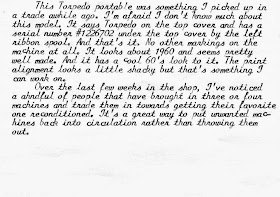 This Torpedo portable was something I picked up in
a trade awhile ago. I'm afraid I don't know much about
this model. It says Torpedo on the top cover and has a
serial number #1226702 under the top cover by the left
ribbon spool. And that's it. No other markings on the
machine at all. It looks about 1960 and seems pretty
well made. And it has a cool 60's look to it. The print
alignment looks a little shacky but that's something I
can work on.
Over the last few weeks in the shop, I've noticed
a ahndful of people that have brought in three or four
machines and trade them in towards getting their favorite
one reconditioned. It's a great way to put unwanted mac-
hines back into circulation rather than throwing them
out.